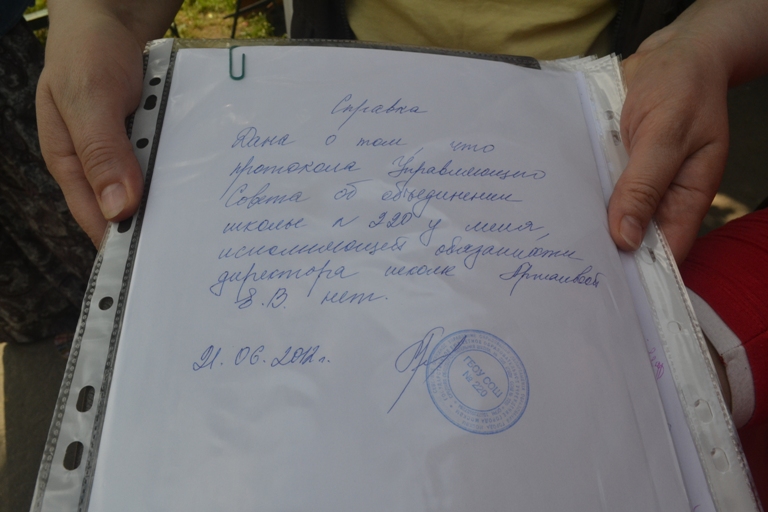 Справка
Дана о том, что
протокола Управляющего
Совета об объединении
школы № 220 у меня,
исполняющей обязанности
директора школы
Е.В. нет.
21.06.2012г.
ГБОУ СОШ
№ 220